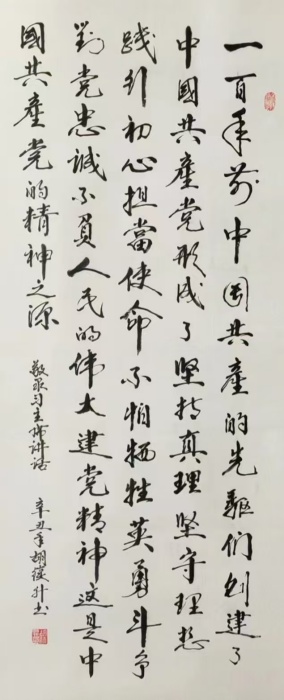 一百年前中国共産的先驅们创建了
中國共産党形成了坚持真理坚守理想
践行初心担當使命不怕牺牲英勇斗争
對党忠誠不負人民的伟大建党精神这是中
國共産党的精神之源
敬录习主席讲话
辛丑年胡俊升书